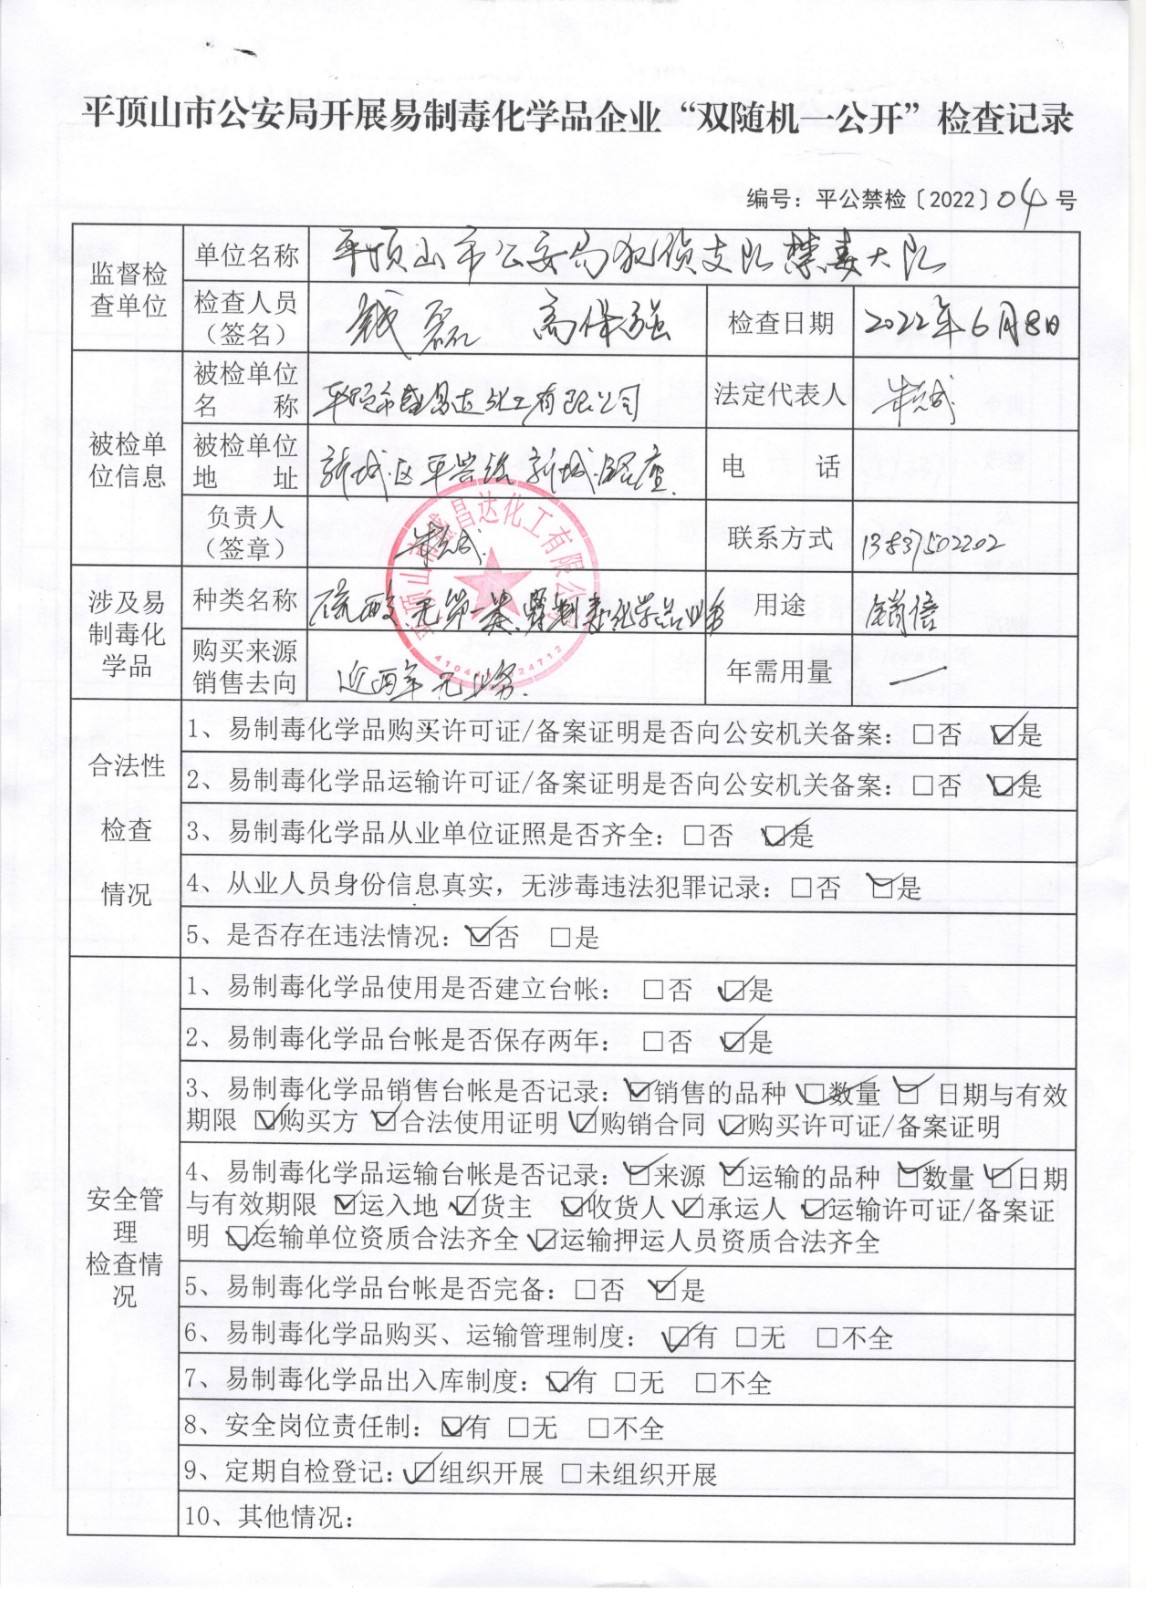 平顶山市公安局开展易制毒化学品企业“双随机一公开”检查记录
编号：平公禁检〔2022〕04号
监督检查单位
单位名称
平顶山市公安局犯侦支队禁毒大队
检查人员
（签名）
钱磊 高保强
检查日期
2022年6月8日
被检单位信息
被检单位
名 称
平顶山市盛昌达化工有限公司
法定代表人
被检单位
地 址
新城区平安路新城
电 话
负责人
（签章）
联系方式
13837502202
平顶山市盛昌达化工有限公司
涉及易制毒化学品
种类名称
硫酸、无第一类、易制毒化学品业务
用途
购买来源
销售去向
近两年无业务.
年需用量
一
合法性
检查
情况
1、易制毒化学品购买许可证/备案证明是否向公安机关备案：□否 ☑是
2、易制毒化学品运输许可证/备案证明是否向公安机关备案：□否 ☑是
3、易制毒化学品从业单位证照是否齐全：□否 ☑是
4、从业人员身份信息真实，无涉毒违法犯罪记录：□否 ☑是
5、是否存在违法情况：☑否 □是
安全管理
检查情况
1、易制毒化学品使用是否建立台帐： □否 ☑是
2、易制毒化学品台帐是否保存两年： □否 ☑是
3、易制毒化学品销售台帐是否记录：☑销售的品种 ☑数量 ☑ 日期与有效
期限 ☑购买方 ☑合法使用证明 ☑购销合同 ☑购买许可证/备案证明
4、易制毒化学品运输台帐是否记录：☑来源 ☑运输的品种 ☑数量 ☑日期
与有效期限 ☑运入地 ☑货主 ☑收货人 ☑承运人 ☑运输许可证/备案证
明 ☑运输单位资质合法齐全 ☑运输押运人员资质合法齐全
5、易制毒化学品台帐是否完备：□否 ☑是
6、易制毒化学品购买、运输管理制度： ☑有 □无 □不全
7、易制毒化学品出入库制度：☑有 □无 □不全
8、安全岗位责任制：☑有 □无 □不全
9、定期自检登记：☑组织开展 □未组织开展
10、其他情况：